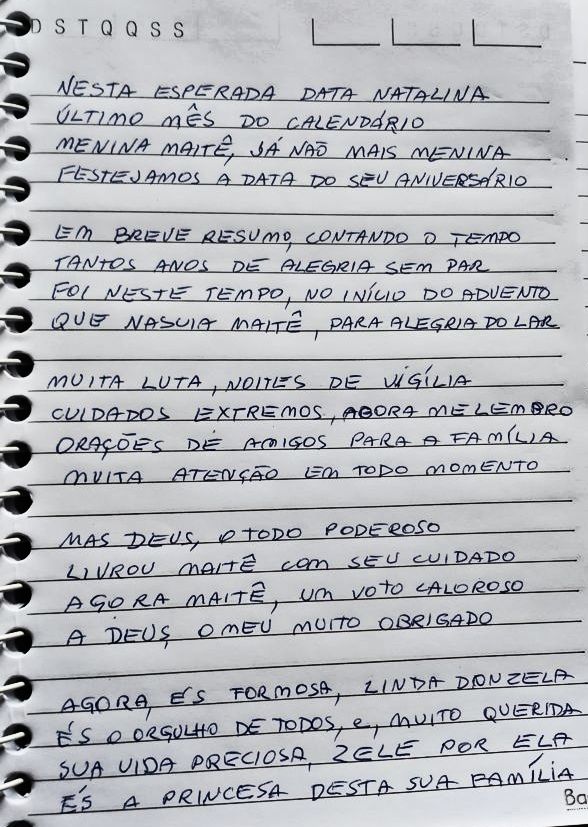 D S T Q Q S S
NESTA ESPERADA DATA NATALINA
ÚLTIMO MÊS DO CALENDÁRIO
MENINA MAITÊ, JÁ NÃO MAIS MENINA
FESTEJAMOS A DATA DO SEU ANIVERSÁRIO
EM BREVE RESUMO, CONTANDO O TEMPO
TANTOS ANOS DE ALEGRIA SEM PAR
FOI NESTE TEMPO, NO INÍCIO DO ADVENTO
QUE NASCIA MAITÊ, PARA ALEGRIA DO LAR
MUITA LUTA, NOITES DE VIGÍLIA
CUIDADOS EXTREMOS, AGORA ME LEMBRO
ORAÇÕES DE AMIGOS PARA A FAMÍLIA
MUITA ATENÇÃO EM TODO MOMENTO
MAS DEUS, O TODO PODEROSO
LIVROU MAITÊ COM SEU CUIDADO
AGORA MAITÊ, UM VOTO CALOROSO
A DEUS, O MEU MUITO OBRIGADO
AGORA, ÉS FORMOSA, LINDA DONZELA
ÉS O ORGULHO DE TODOS, e, MUITO QUERIDA
SUA VIDA PRECIOSA, ZELE POR ELA
ÉS A PRINCESA DESTA SUA FAMÍLIA
Ba